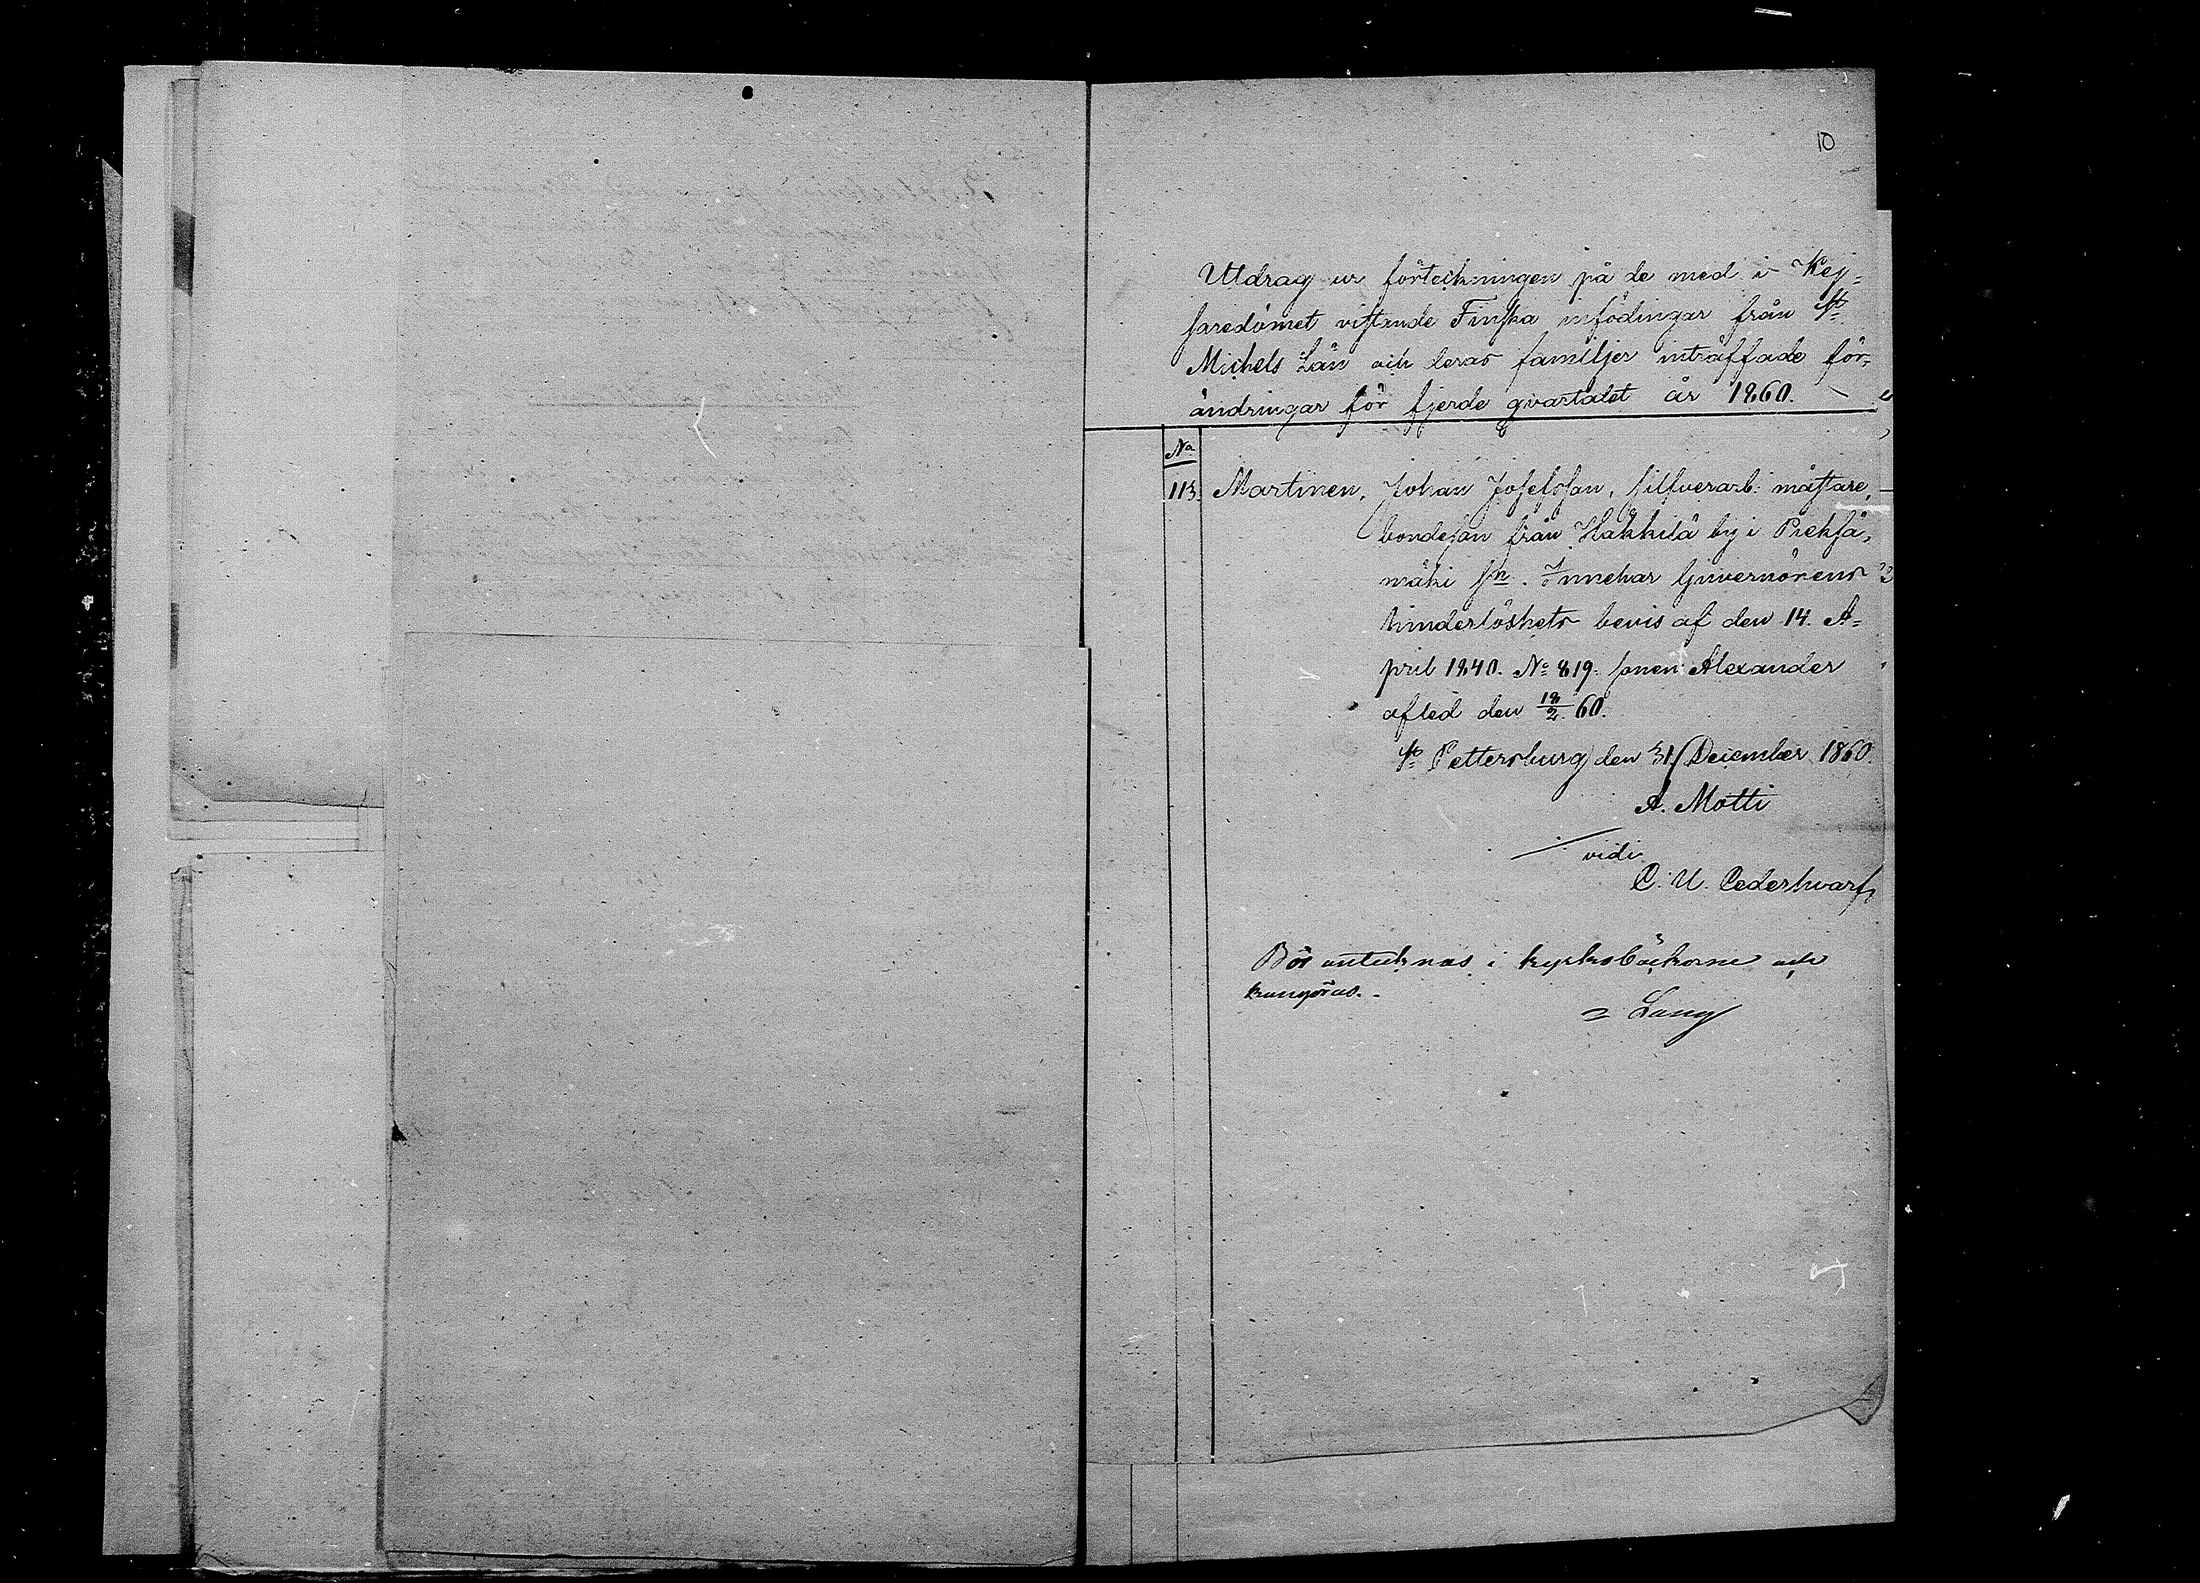 10
Utdrag ur förteckningen på de med i Kej-
saredömet vistande Finska infödingar från S:t
Michels Län och deras familjer inträffade för-
ändringar för fjerde qvartalet år 1860.
No
113. Martinen, Johan Josefsson, silfverarb. mästare,
bondeson från Hakkilä by i Pieksä-
mäki sn. Innehar Guvernörens
hinderlöshets bevis af den 14. A-
pril 1840. No 819. sonen Alexander
afled den 18/2 60.
S:t Pettersburg den 31 December 1860.
A. Motti
vidi
C. U. Cederhvarf
Bör antecknas i kyrkoböckerne och
kungöras. -
Lang